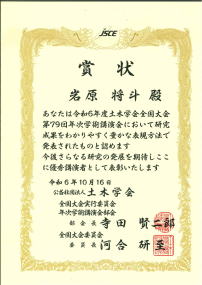 JSCE
賞状
岩原 将斗 殿
あなたは令和6年度土木学会全国大会
第79回年次学術講演会において研究
成果をわかりやすく豊かな表現方法で
発表されたものと認めます
今後さらなる研究の発展を期待しここ
に優秀講演者として表彰いたします
令和6年10月16日
公益社団法人 土木学会
全国大会実行委員会
年次学術講演会部会
部会長 寺田 賢二郎
全国大会委員会
委員長 河合 研至